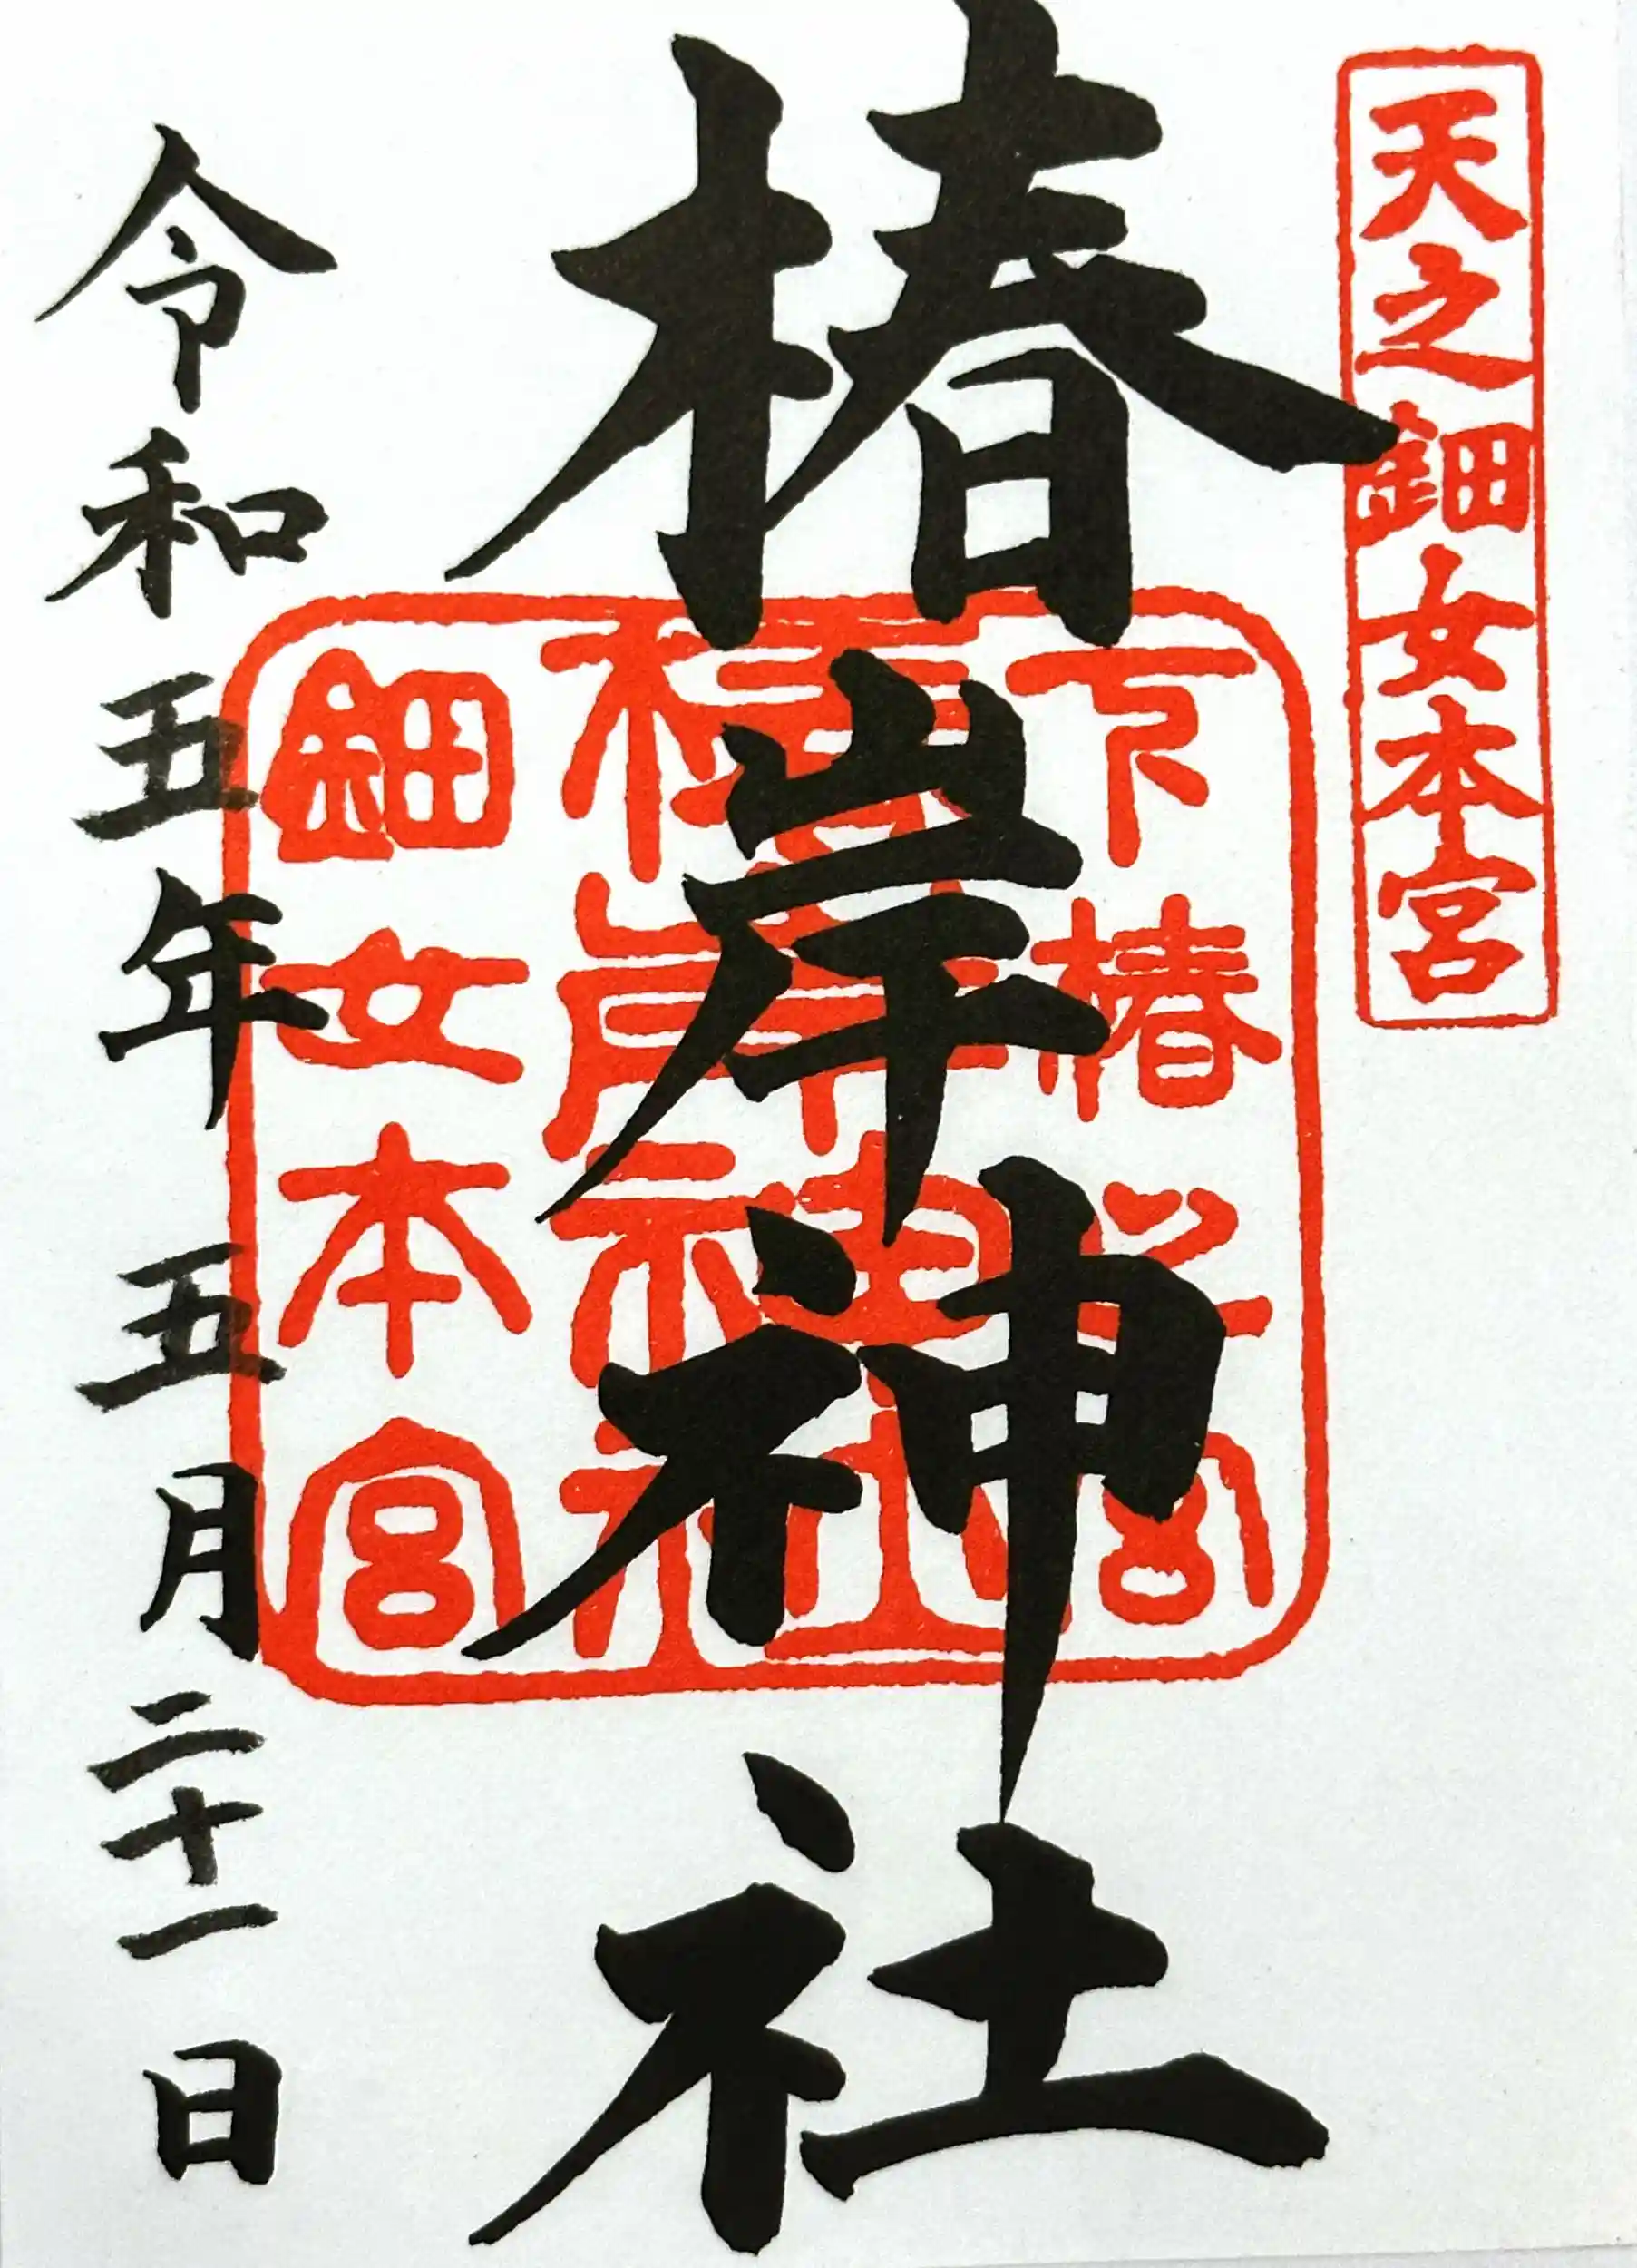 天之鈿女本宮
椿岸神社
下椿 宮
椿岸神社
鈿女本宮
令和五年五月二十一日